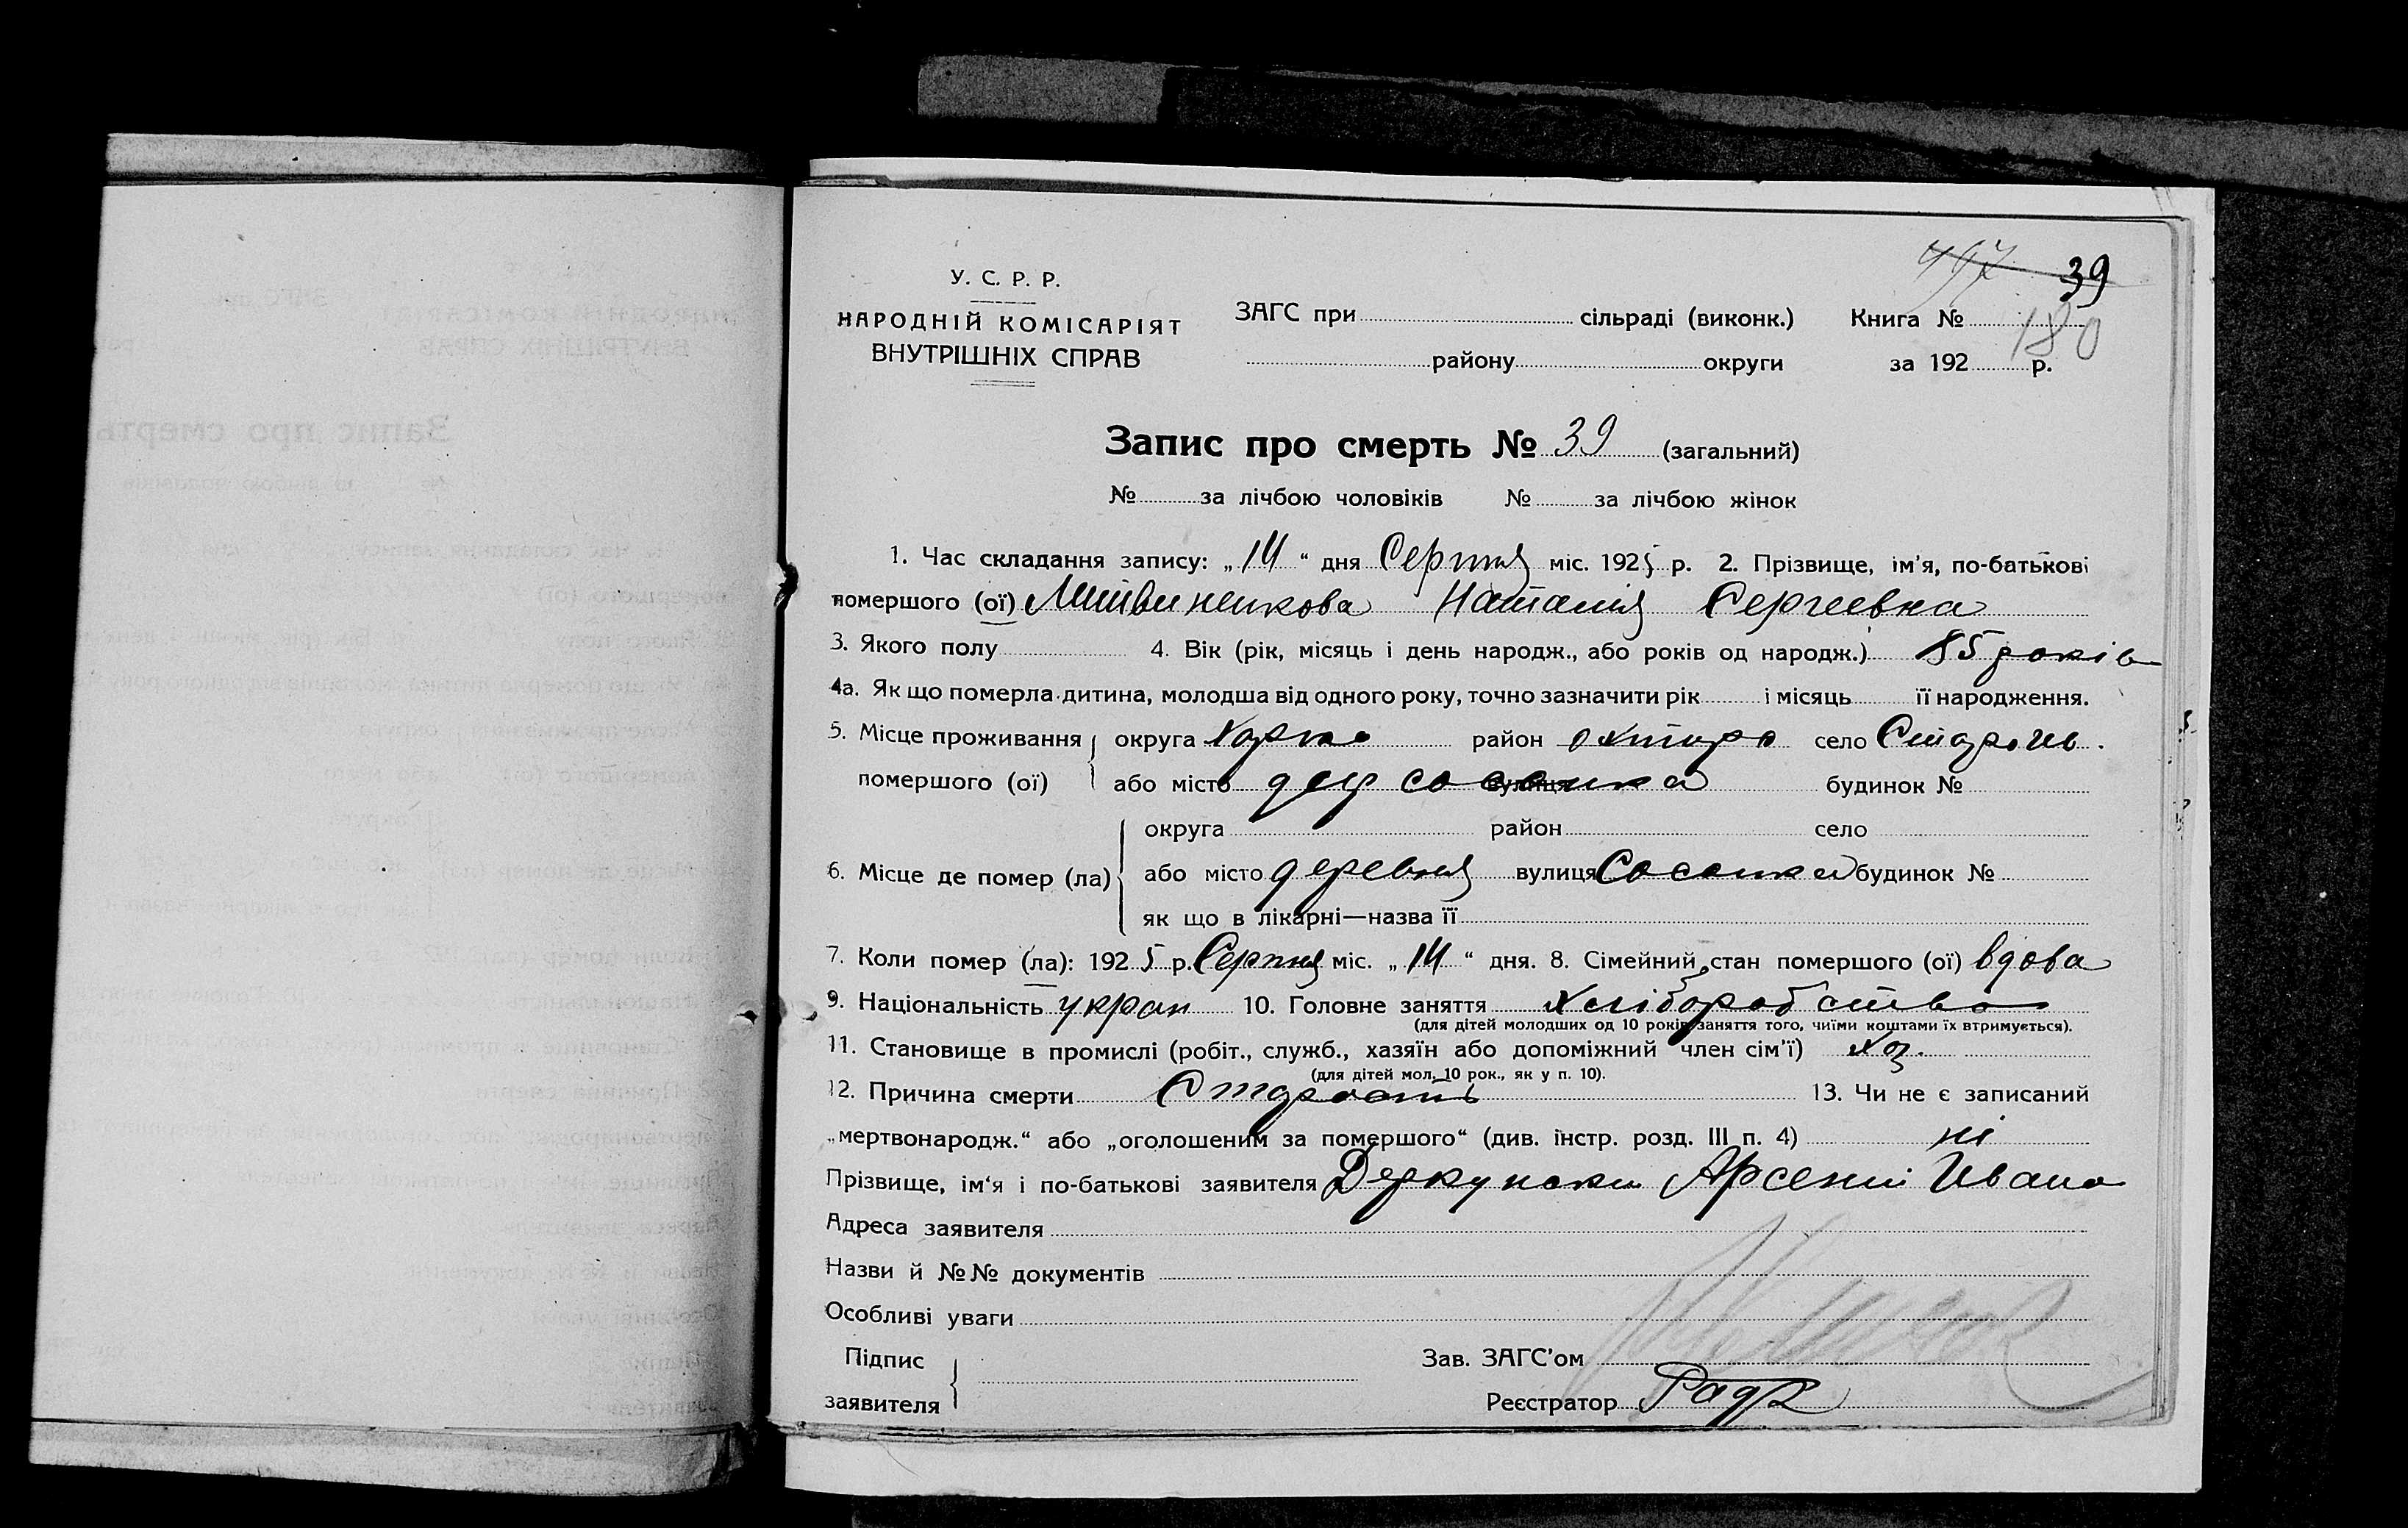 39
У. С. Р. Р.
НАРОДНІЙ КОМІСАРІЯТ
ВНУТРІШНІХ СПРАВ
ЗАГС при сільраді (виконк.) Книга №
180
району округи за 192 р.
Запис про смерть № 39 (загальний)
№ за лічбою чоловіків № за лічбою жінок
1. Час складання запису: „14“ дня Серпня міс. 1925 р. 2. Прізвище, ім'я, по-батькові
помершого (ої) Литвиненкова Наталія Сергеевна
3. Якого полу 4. Вік (рік, місяць і день народж., або років од народж.) 85 років
4а. Як що померла дитина, молодша від одного року, точно зазначити рік і місяць її народження.
5. Місце проживання округа Харко район Охтиро село
помершого (ої) або місто дер Сосонка вулиця будинок №
округа район село
6. Місце де помер (ла) або місто деревня вулиця Сосонка будинок №
як що в лікарні—назва її
7. Коли помер (ла): 1925 р. Серпня міс. „14“ дня. 8. Сімейний стан помершого (ої) вдова
9. Національність укран 10. Головне заняття хліборобство
(для дітей молодших од 10 років заняття того, чиїми коштами їх втримується).
11. Становище в промислі (робіт., служб., хазяїн або допоміжний член сім'ї) хоз.
(для дітей мол. 10 рок., як у п. 10).
12. Причина смерти Старость 13. Чи не є записаний
„мертвонародж.“ або „оголошеним за помершого“ (див. інстр. розд. III п. 4) ні
Прізвище, ім'я і по-батькові заявителя Арсений Ивано
Адреса заявителя
Назви й №№ документів
Особливі уваги
Підпис
заявителя
Зав. ЗАГС'ом
Реєстратор